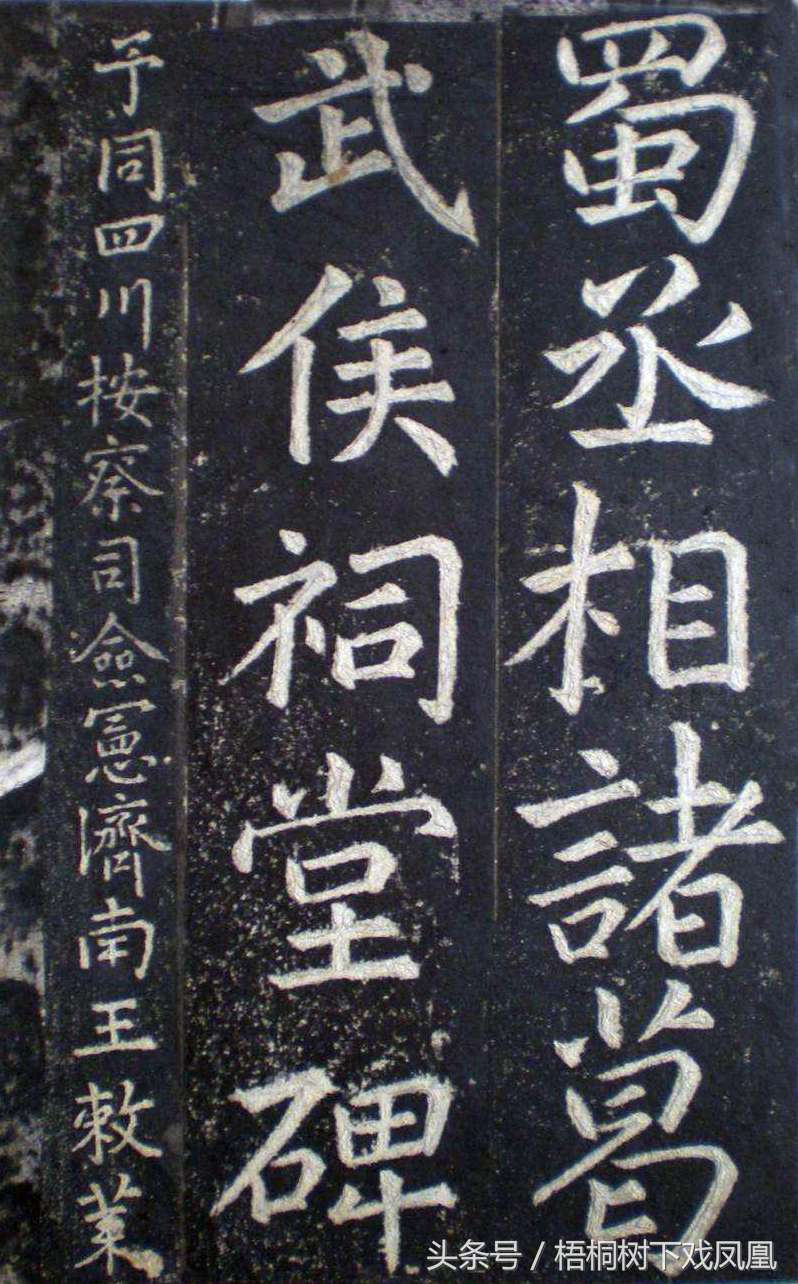 蜀丞相諸葛
武侯祠堂碑
予同四川按察司僉憲濟南王敕葉
头条号 / 梧桐树下戏凤凰